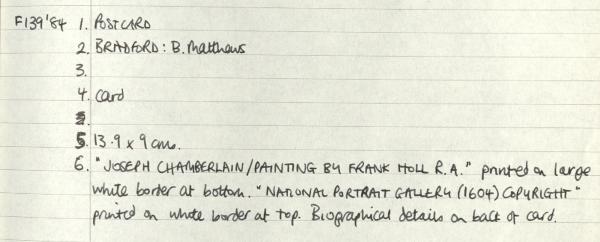 F139'84 1. POSTCARD
2. BRADFORD: B. Matthews
3.
4. card
5.
5. 13.9 x 9 cms.
6. "JOSEPH CHAMBERLAIN/PAINTING BY FRANK HOLL R.A." printed on large
white border at bottom. "NATIONAL PORTRAIT GALLERY (1604) COPYRIGHT"
printed on white border at top. Biographical details on back of card.